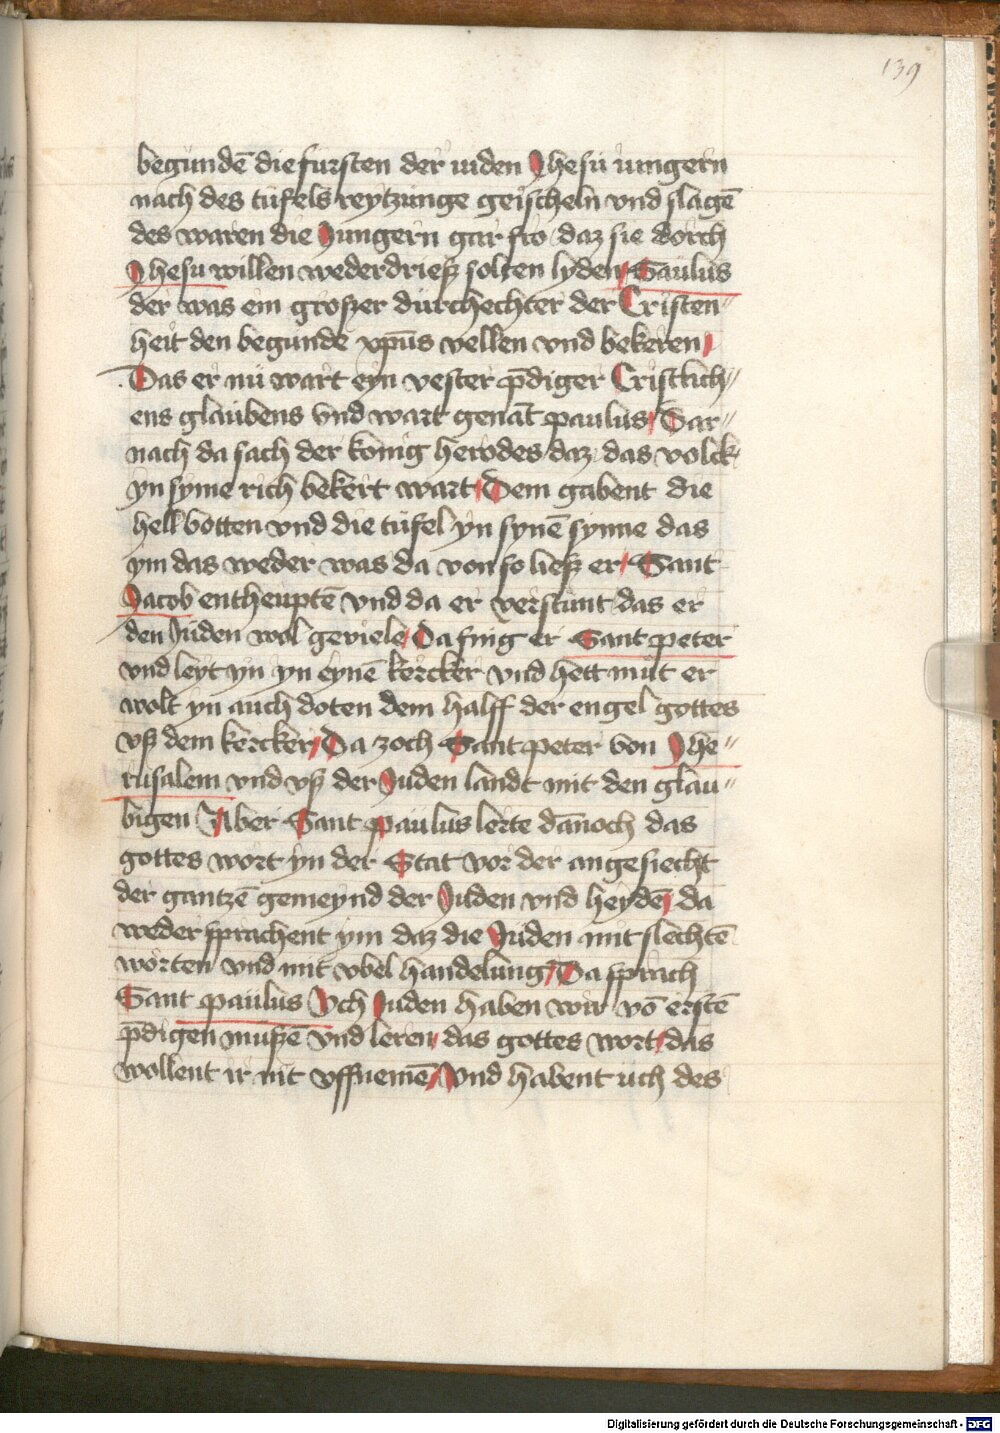 139
begundē die fursten der iuden Jhesu iungern
nach des tufels reytzunge geischeln vnd slagē
des waren die Jungern gar fro daz sie dorch
Jhesu willen wederdrieß solten lyden Saulus
der was ein großer durchechter der Cristen"
heit den begunde xp̄us vellen vnd bekeren
Das er nu wart eyn vester p̄diger Cristlich"
ens glaubens vnd wart genāt paulus Dar"
nach da sach der konig herodes daz das volck
yn syme rich bekert wart Dem gabent die
hell botten vnd die tufel yn synē synne das
ym das weder was da von so ließ er Sant
Jacob entheuptē vnd da er verstunt das er
den Juden wol geviele Da fing er Sant peter
vnd leyt yn yn eynē kercker vnd hett mut er
wolt yn auch doten dem halff der engel gottes
vß dem kercker Da zoch Sant peter von Jhe"
rusalem vnd vß der Juden landt mit den glau"
bigen Aber Sant paulus lerte dānoch das
gottes wort yn der Stat vor der angesiecht
der gantzē gemeynd der Juden vnd heydē da
weder sprachent ym daz die Juden mit slechtē
worten vnd mit vbel handelung Da sprach
Sant paulus Vch Juden haben wir vō erstē
p̄digen mußē vnd leren das gottes wort das
wollent ir nit vffnemē Vnd habent uch des
Digitalisierung gefördert durch die Deutsche Forschungsgemeinschaft - DFG